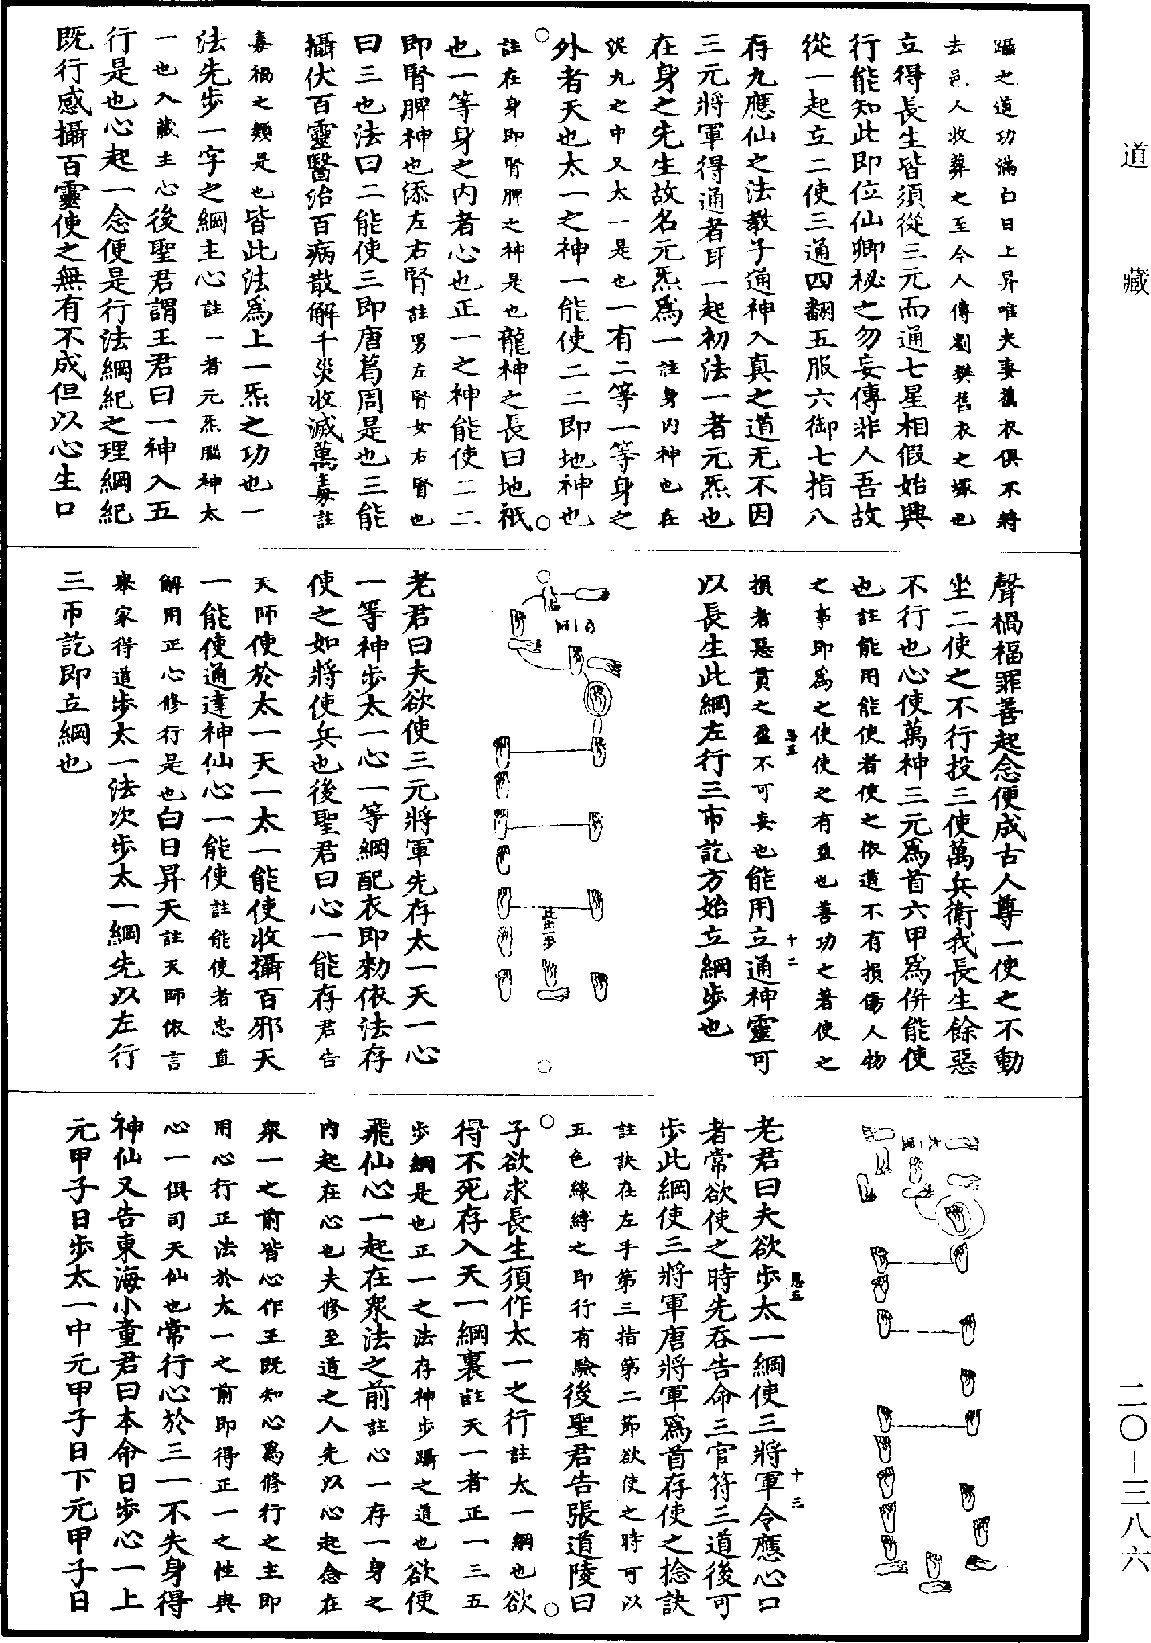 道藏
二〇—三八六
躡之道功滿白日上昇唯夫妻舊衣俱不將
去邑人收葬之至今人傳劉樊舊衣之塚也
立得長生皆須從三元而通七星相假始興
行能知此即位仙卿秘之勿妄傳非人吾故
從一起立二使三通四翻五服六御七指八
存九應仙之法教子通神入真之道无不因
三元將軍得通者耳一起初法一者元炁也
在身之先生故名元炁爲一註身内神也在
泥九之中又太一是也一有二等一等身之
外者天也太一之神一能使二二即地神也
註在身即腎脾之神是也龍神之長曰地祇
也一等身之内者心也正一之神能使二二
即腎脾神也添左右腎註男左腎女右腎也
曰三也法曰二能使三即唐葛周是也三能
攝伏百靈醫治百病散解千災收滅萬毒註
毒禍之類是也皆此法爲上一炁之功也一
法先步一字之綱主心註一者元炁腦神太
一也入藏主心後聖君謂王君曰一神入五
行是也心起一念便是行法綱紀之理綱紀
既行感攝百靈使之無有不成但以心生口
聲禍福罪善起念便成古人尊一使之不動
坐二使之不行投三使萬兵衛我長生餘惡
不行也心使萬神三元爲首六甲爲併能使
也註能用能使者使之依道不有損傷人物
之事即爲之使使之有益也善功之著使之
損者惡貫之盈不可妄也能用立通神靈可
以長生此綱左行三帀訖方始立綱步也
十二
老君曰夫欲使三元將軍先存太一天一心
一等神步太一心一等綱配衣即勑依法存
使之如將使兵也後聖君曰心一能存君告
天師使於太一天一太一能使收攝百邪天
一能使通達神仙心一能使註能使者忠直
解用正心修行是也白日昇天註天師依言
舉家得道步太一法次步太一綱先以左行
三帀訖即立綱也
老君曰夫欲步太一綱使三將軍令應心口
者常欲使之時先吞告命三官符三道後可
步此綱使三將軍唐將軍爲首存使之捻訣
註訣在左手第三指第二節欲使之時可以
五色線縛之即行有驗後聖君告張道陵曰
十三
子欲求長生須作太一之行註太一綱也欲
得不死存入天一綱裏註天一者正一三五
步綱是也正一之法存神步躡之道也欲便
飛仙心一起在衆法之前註心一存一身之
内起在心也夫修至道之人先以心起念在
衆一之前皆心作王既知心爲修行之主即
用心行正法於太一之前即得正一之性與
心一俱司天仙也常行心於三一不失身得
神仙又告東海小童君曰本命日步心一上
元甲子日步太一中元甲子日下元甲子日